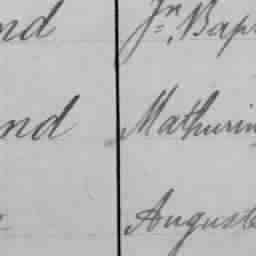 nd Jn Bap
nd Mathurin
Auguste